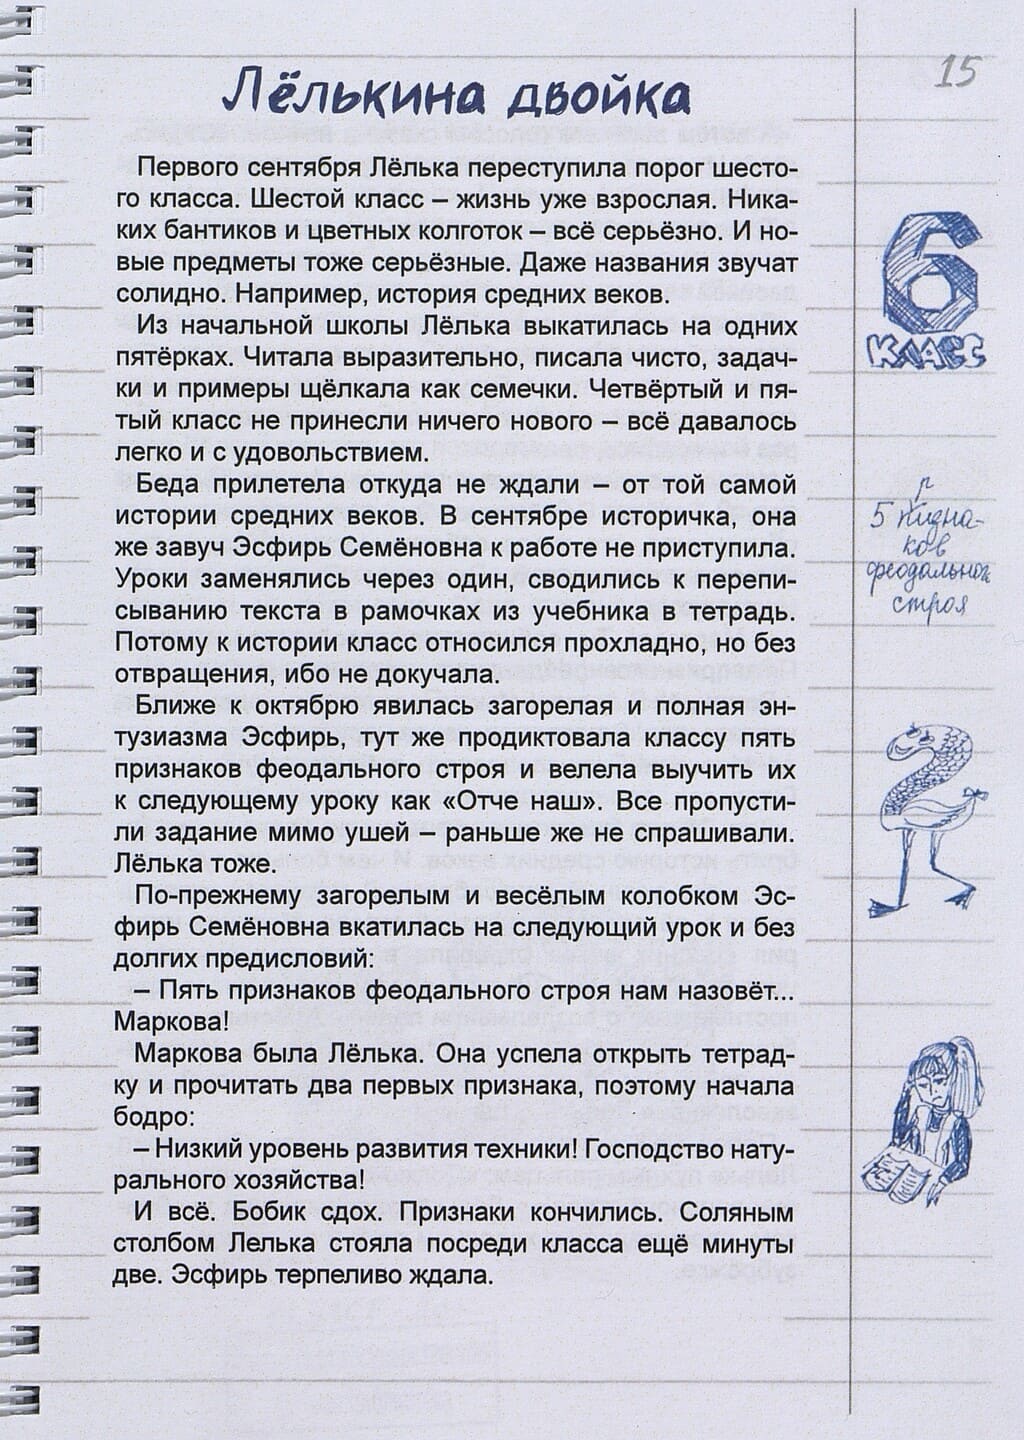 15
Лёлькина двойка
Первого сентября Лёлька переступила порог шесто-
го класса. Шестой класс – жизнь уже взрослая. Ника-
ких бантиков и цветных колготок – всё серьёзно. И но-
вые предметы тоже серьёзные. Даже названия звучат
солидно. Например, история средних веков.
Из начальной школы Лёлька выкатилась на одних
пятёрках. Читала выразительно, писала чисто, задач-
ки и примеры щёлкала как семечки. Четвёртый и пя-
тый класс не принесли ничего нового – всё давалось
легко и с удовольствием.
Беда прилетела откуда не ждали – от той самой
истории средних веков. В сентябре историчка, она
же завуч Эсфирь Семёновна к работе не приступила.
Уроки заменялись через один, сводились к перепи-
сыванию текста в рамочках из учебника в тетрадь.
Потому к истории класс относился прохладно, но без
отвращения, ибо не докучала.
Ближе к октябрю явилась загорелая и полная эн-
тузиазма Эсфирь, тут же продиктовала классу пять
признаков феодального строя и велела выучить их
к следующему уроку как «Отче наш». Все пропусти-
ли задание мимо ушей – раньше же не спрашивали.
Лёлька тоже.
По-прежнему загорелым и весёлым колобком Эс-
фирь Семёновна вкатилась на следующий урок и без
долгих предисловий:
– Пять признаков феодального строя нам назовёт...
Маркова!
Маркова была Лёлька. Она успела открыть тетрад-
ку и прочитать два первых признака, поэтому начала
бодро:
– Низкий уровень развития техники! Господство нату-
рального хозяйства!
И всё. Бобик сдох. Признаки кончились. Соляным
столбом Лелька стояла посреди класса ещё минуты
две. Эсфирь терпеливо ждала.
6
КЛАСС
р
5 пизна-
ков
феодальной
строя
2